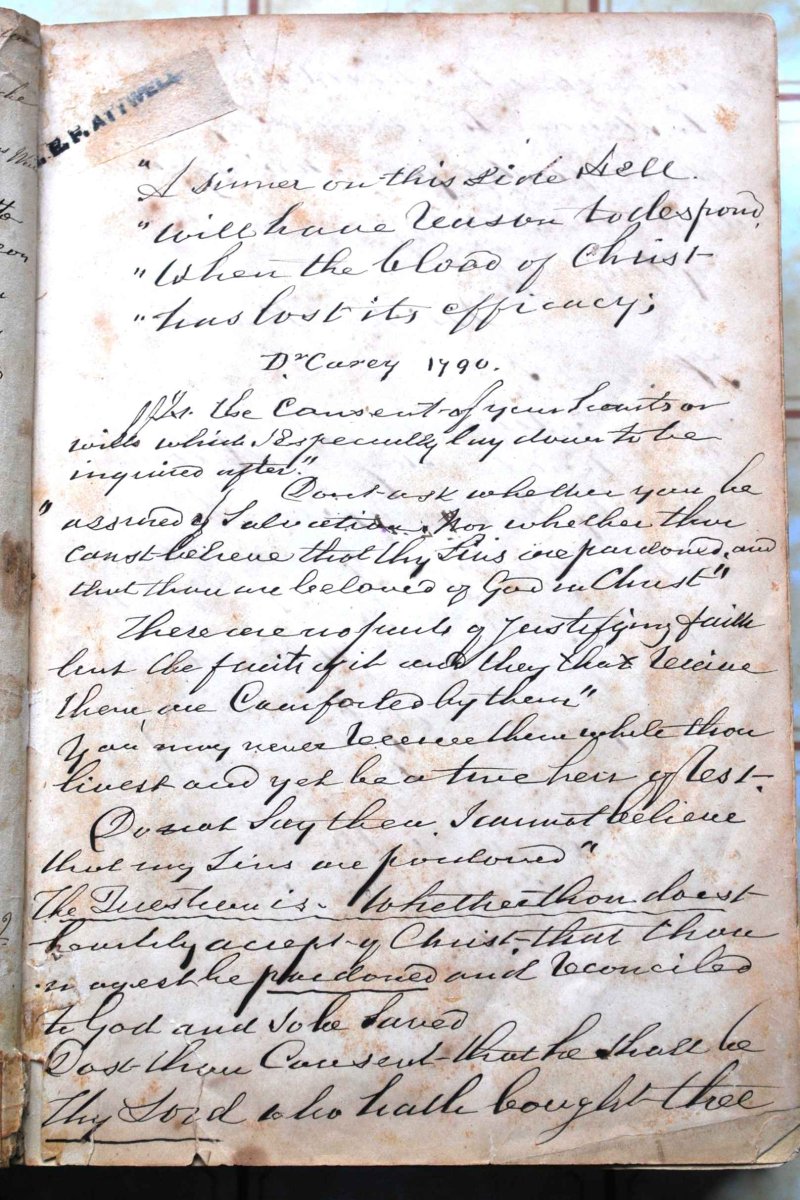 E.F. ATTWELL
"A sinner on this side Hell.
"will have reason to despond,
"When the blood of Christ
"has lost its efficacy;
Dr Carey 1790.
"Tis the Consent of your hearts or
wills which I Especially lay down to be
inquired after."
Dont ask whether you be
"assured of Salvation. Nor whether thou
canst believe that thy Sins are pardoned, and
that thou are beloved of God in Christ"
These are no parts of Justifying faith
but the fruits of it and they that receive
them are Comforted by them"
You may never receive them while thou
livest and yet be a true heir of rest.
Do not Say then. I cannot believe
that my Sins are pardoned"
The Question is. Whether thou doest
heartily accept of Christ that thou
mayest be pardoned and reconciled
to God and so be saved
Dost thou Consent that he shall be
thy Lord who hath bought thee